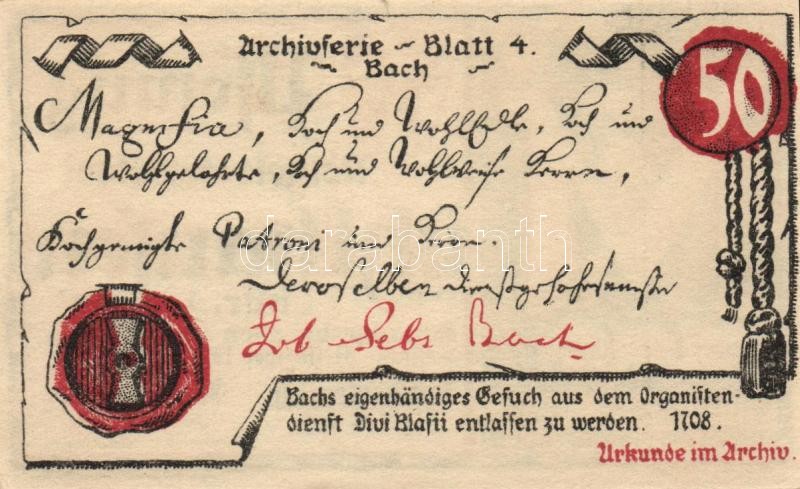 Archivserie - Blatt 4.
Bach
50
Magnifici, Hoch und WohlEdle, Hoch und
Wohlgelahrte, Hoch und Wohlweise Herren,
Hochgeneigte Patroni und Herren.
Deroselben dienstgehorsamster
Joh Sebs Bach
darabanth
Bachs eigenhändiges Gesuch aus dem Organisten-
dienst Divi Blasii entlassen zu werden. 1708.
Urkunde im Archiv.